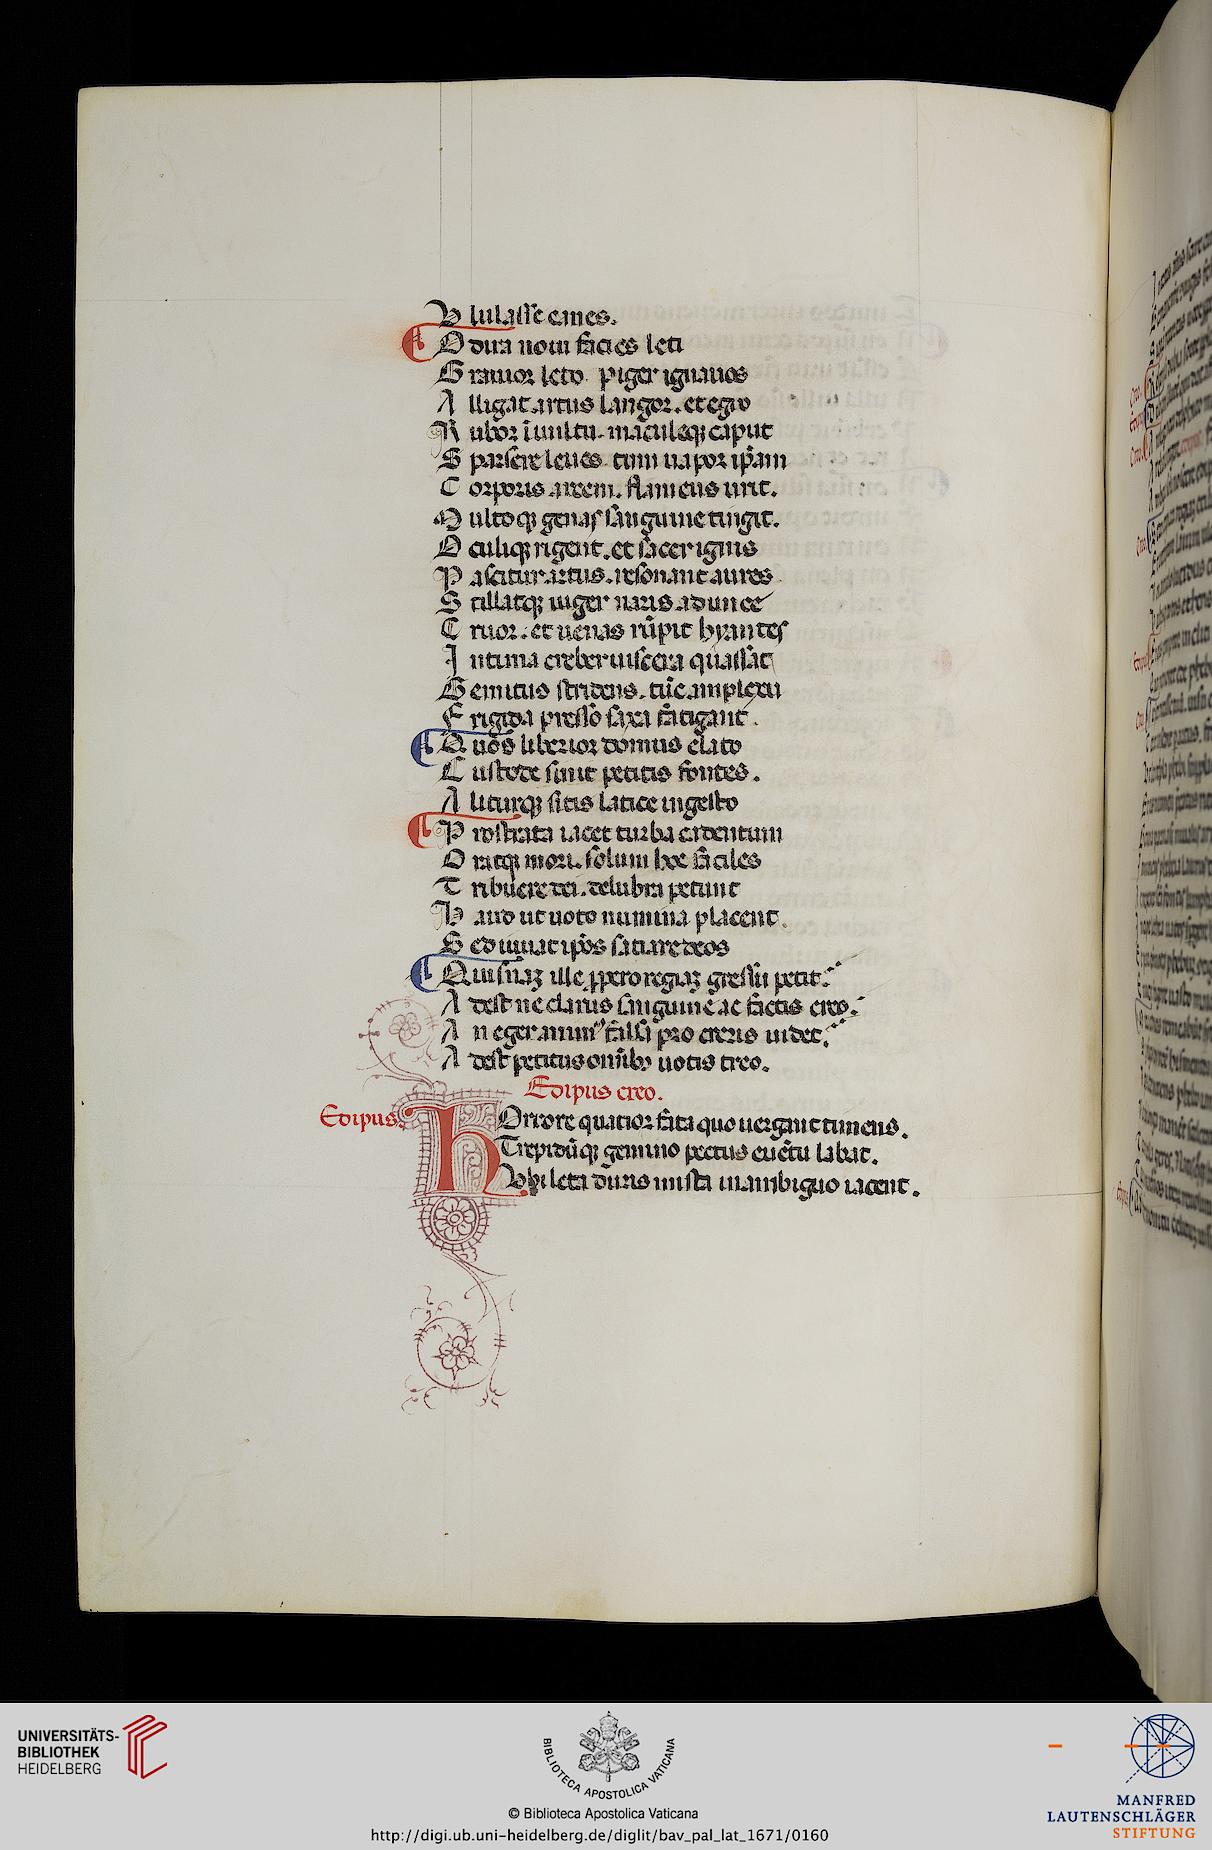 V lulasse canes.
O dira noui facies leti
G rauior leto . piger ignauos
A lligat artus langor . et egro
R ubor ī uultu . maculeqꝫ caput
S parsere leues . tum uapor ip̄am
C orporis arcem . flameus urit.
M ultoqꝫ genas sanguine tingit.
O culiqꝫ rigent . et sacer ignis
P ascitur artus . resonant aures
S tillatqꝫ niger naris adunce
C ruor . et uenas rūpit hyantes
I ntima creber uiscera quassat
G emitus stridens . tūc amplexu
F rigida presso saxa fatigant .
Q uos liberior domus elato
C ustode sinit petitis fontes .
A liturqꝫ sitis latice ingesto
P rostrata iacet turba
O ratqꝫ mori . solum hoc faciles
T ribuere dei . delubra petunt
H aud ut uoto numina placent .
S ed iuuat ip̄os satiare deos
Q uisnaꝫ ille ꝓpero regiaꝫ gressū petit.
A dest ne clarus sanguine ac factis creo.
A n eger animus falsa pro ueris uidet.
A dest petitus omībꝫ uotis creo.
Edipus creo.
Edipus.
HOrrore quatior fata quo uergant timens .
Trepidūqꝫ gemino pectus euētu labat .
Vbi leta duris mista in ambiguo iacent .
UNIVERSITÄTS-
BIBLIOTHEK
HEIDELBERG
BIBLIOTECA APOSTOLICA VATICANA
© Biblioteca Apostolica Vaticana
http://digi.ub.uni-heidelberg.de/diglit/bav_pal_lat_1671/0160
MANFRED
LAUTENSCHLÄGER
STIFTUNG